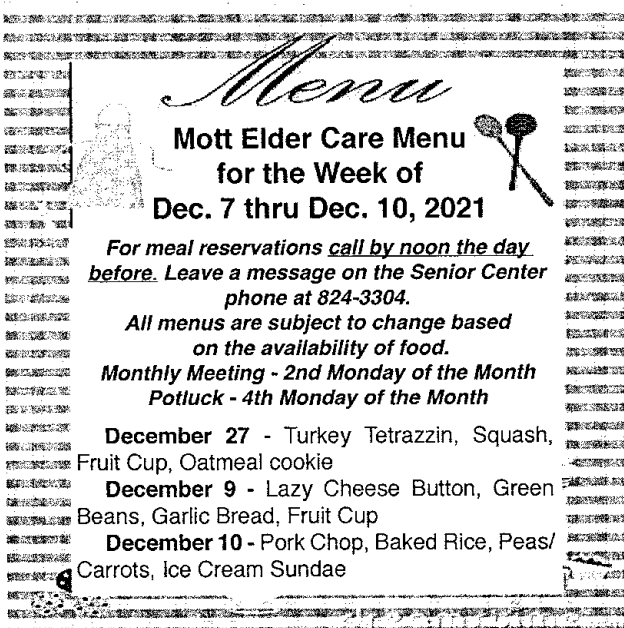 Menu
Mott Elder Care Menu
for the Week of
Dec. 7 thru Dec. 10, 2021
For meal reservations call by noon the day
before. Leave a message on the Senior Center
phone at 824-3304.
All menus are subject to change based
on the availability of food.
Monthly Meeting - 2nd Monday of the Month
Potluck - 4th Monday of the Month
December 27 - Turkey Tetrazzin, Squash,
Fruit Cup, Oatmeal cookie
December 9 - Lazy Cheese Button, Green
Beans, Garlic Bread, Fruit Cup
December 10 - Pork Chop, Baked Rice, Peas/
Carrots, Ice Cream Sundae